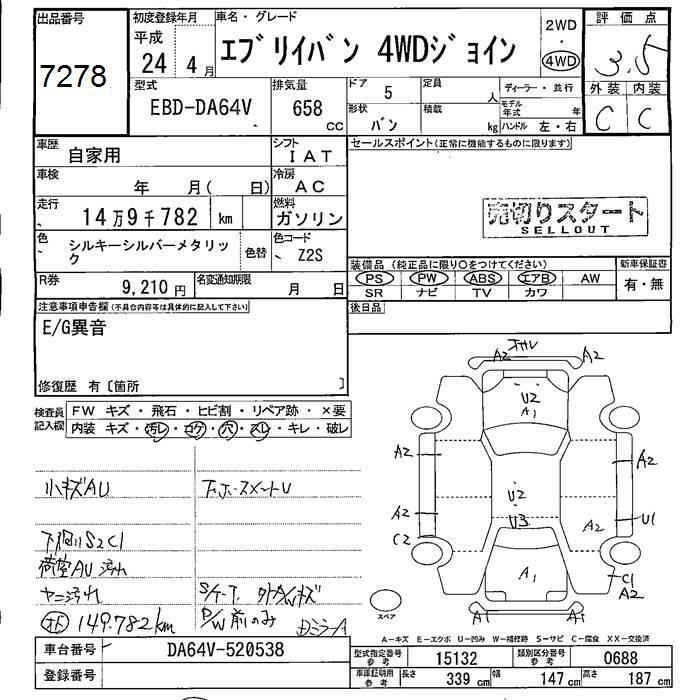 出品番号
7278
初度登録年月
平成
24 4月
車名・グレード
エブリイバン 4WDジョイン
2WD
・
4WD
評価点
3.5
外装 内装
C C
型式
EBD-DA64V
排気量
658
cc
ドア
5
形状
バン
定員
人
積載
kg
ディーラー・並行
モデル年式 年
ハンドル 左・右
車歴
自家用
シフト
IAT
車検
年 月( 日)
冷房
AC
走行
14万9千782 km
燃料
ガソリン
色
シルキーシルバーメタリック
色替
色コード
Z2S
R券
9,210円
名変通知期限
月 日
セールスポイント(正常に機能するものに限ります)
売切りスタート
SELLOUT
装備品 (純正品に限り○をつけてください)
PS PW ABS エアB AW
SR ナビ TV カワ
新車保証書
有・無
後日品
注意事項申告欄(不具合内容等は具体的に記入して下さい)
E/G異音
修復歴 有〔箇所 〕
検査員記入欄
FW キズ・飛石・ヒビ割・リペア跡・×要
内装 キズ・汚レ・コゲ・穴・スレ・キレ・破レ
小キズAU
下廻りS2C1
荷室AU 汚れ
ヤニ汚れ
149.782km
P/W前のみ
A2 A2
U2
A1
A2 A2
U2
A2 U3 A2 U1
C2
A1
C1
A2
スペア
A1 A1
A-キズ E-エクボ U-凹み W-補修跡 S-サビ C-腐食 XX-交換済
車台番号
DA64V-520538
登録番号
型式指定番号参考
15132
類別区分番号参考
0688
車庫証明用参考
長さ 339cm 幅 147cm 高さ 187cm